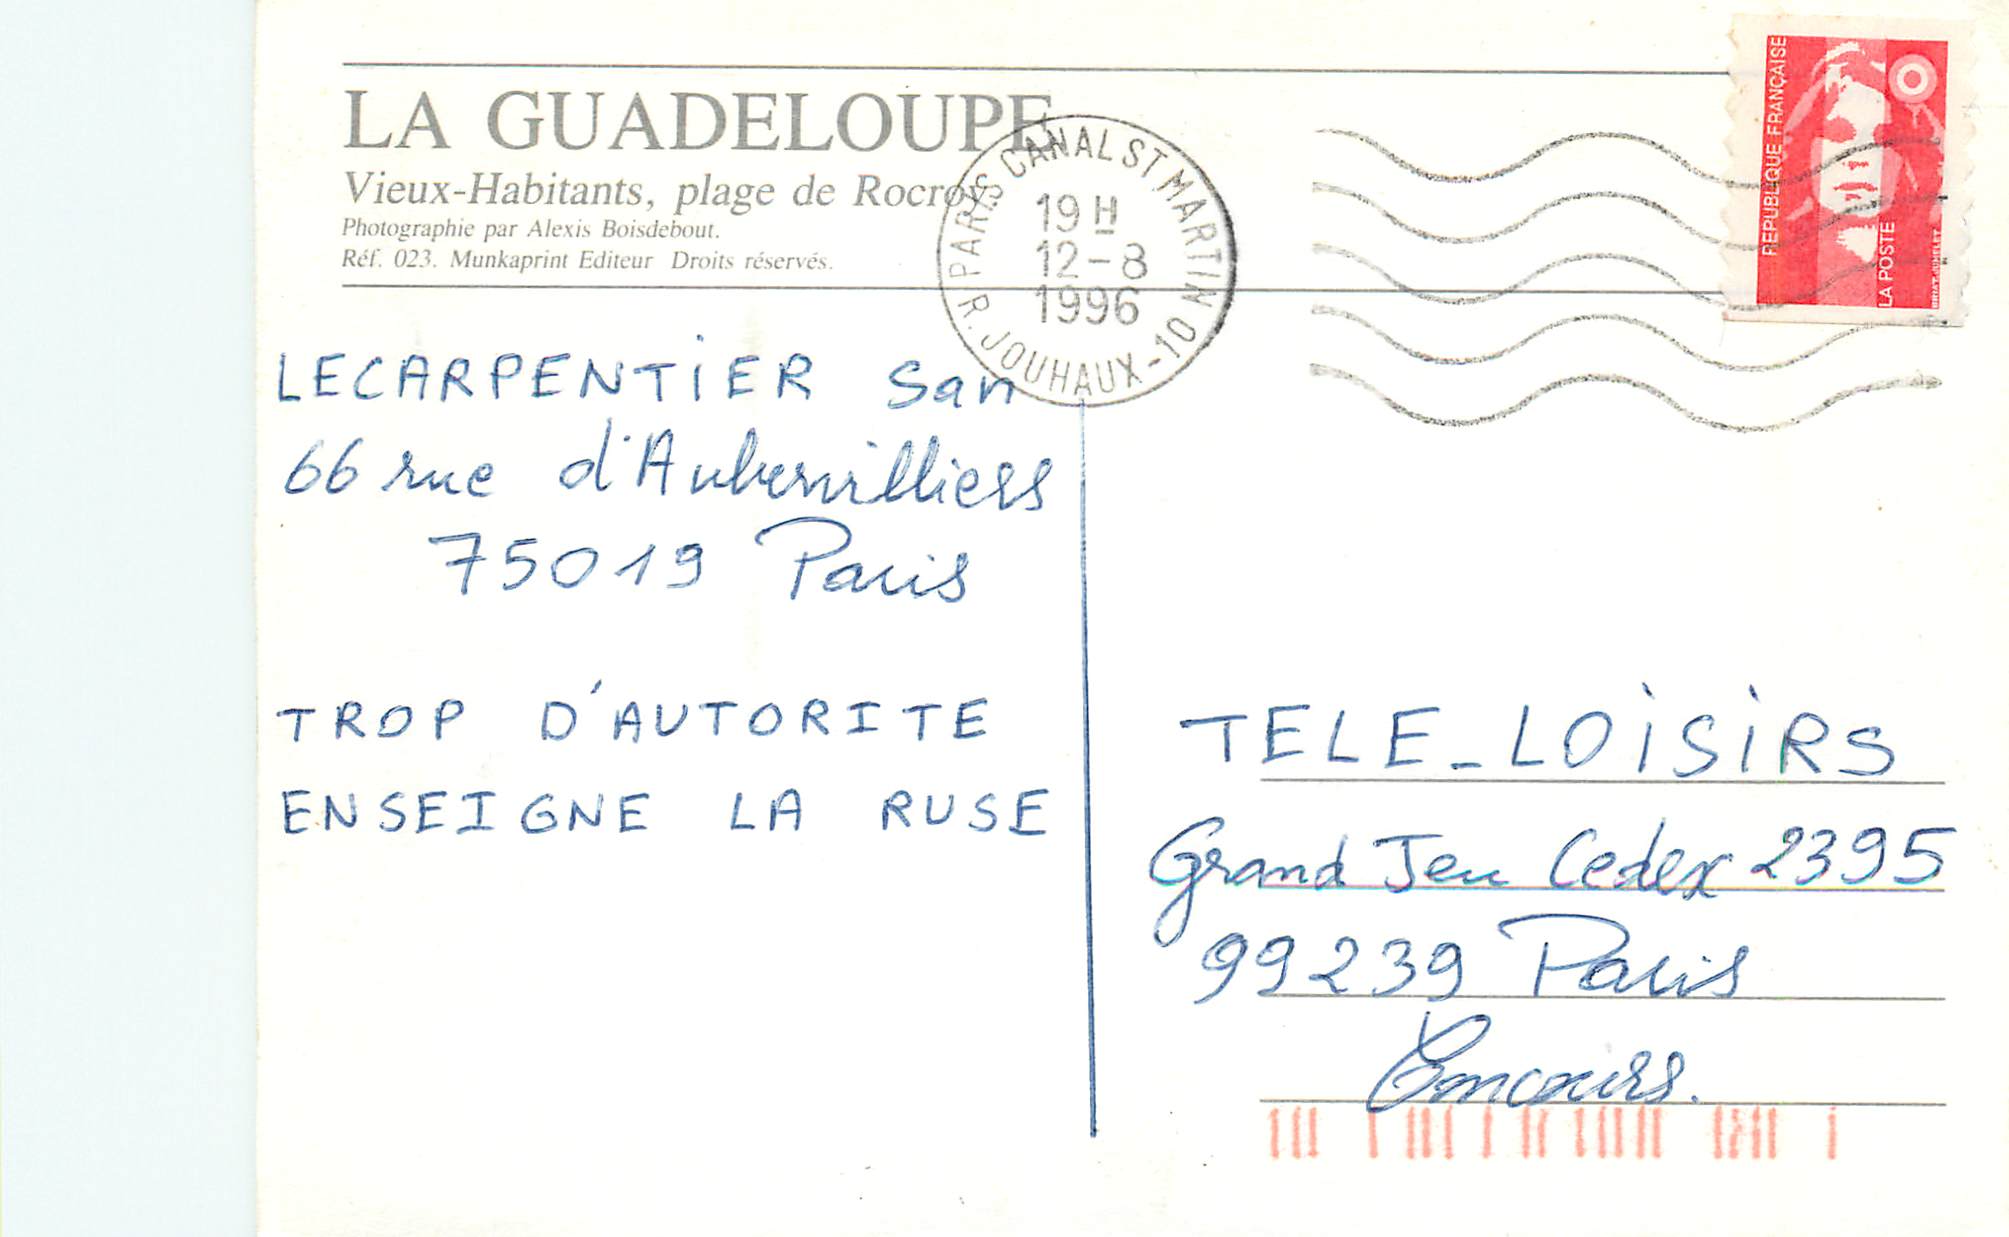 LA GUADELOUPE
Vieux-Habitants, plage de Rocroy.
Photographie par Alexis Boisdebout.
Réf. 023. Munkaprint Editeur Droits réservés.
PARIS CANAL ST MARTIN 10
R. JOUHAUX-
19 H
12-8
1996
REPUBLIQUE FRANÇAISE
LA POSTE
BRIAT-JUMELET
LECARPENTIER San
66 rue d'Aubervilliers
75019 Paris
TROP D'AUTORITE
ENSEIGNE LA RUSE
TELE-LOISIRS
Grand Jeu Cedex 2395
99239 Paris
Concours.